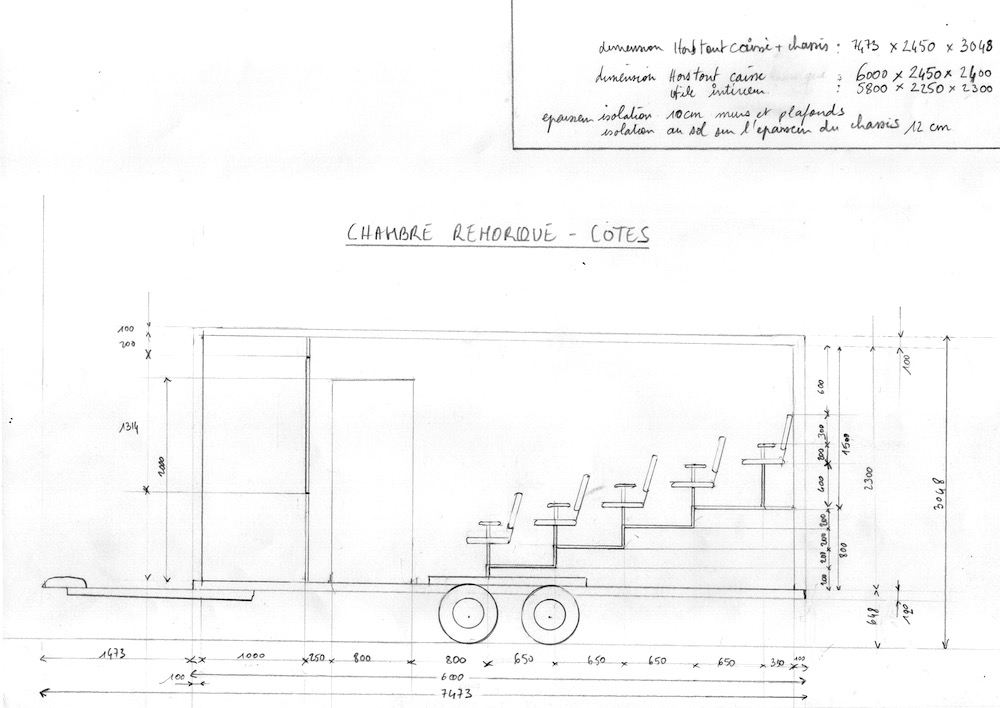 dimension Hors tout caisse + chassis : 7473 x 2450 x 3048
dimension Hors tout caisse : 6000 x 2450 x 2400
utile intérieur : 5800 x 2250 x 2300
epaisseur isolation 10cm murs et plafonds
isolation au sol sur l'epaisseur du chassis 12 cm
CHAMBRE REMORQUE - COTES
100
200
1314
2000
600
300
200
400
200
200
200
200
1500
800
2300
100
3048
648
120
1473
1000
250
800
800
650
650
650
650
350
100
100
6000
7473